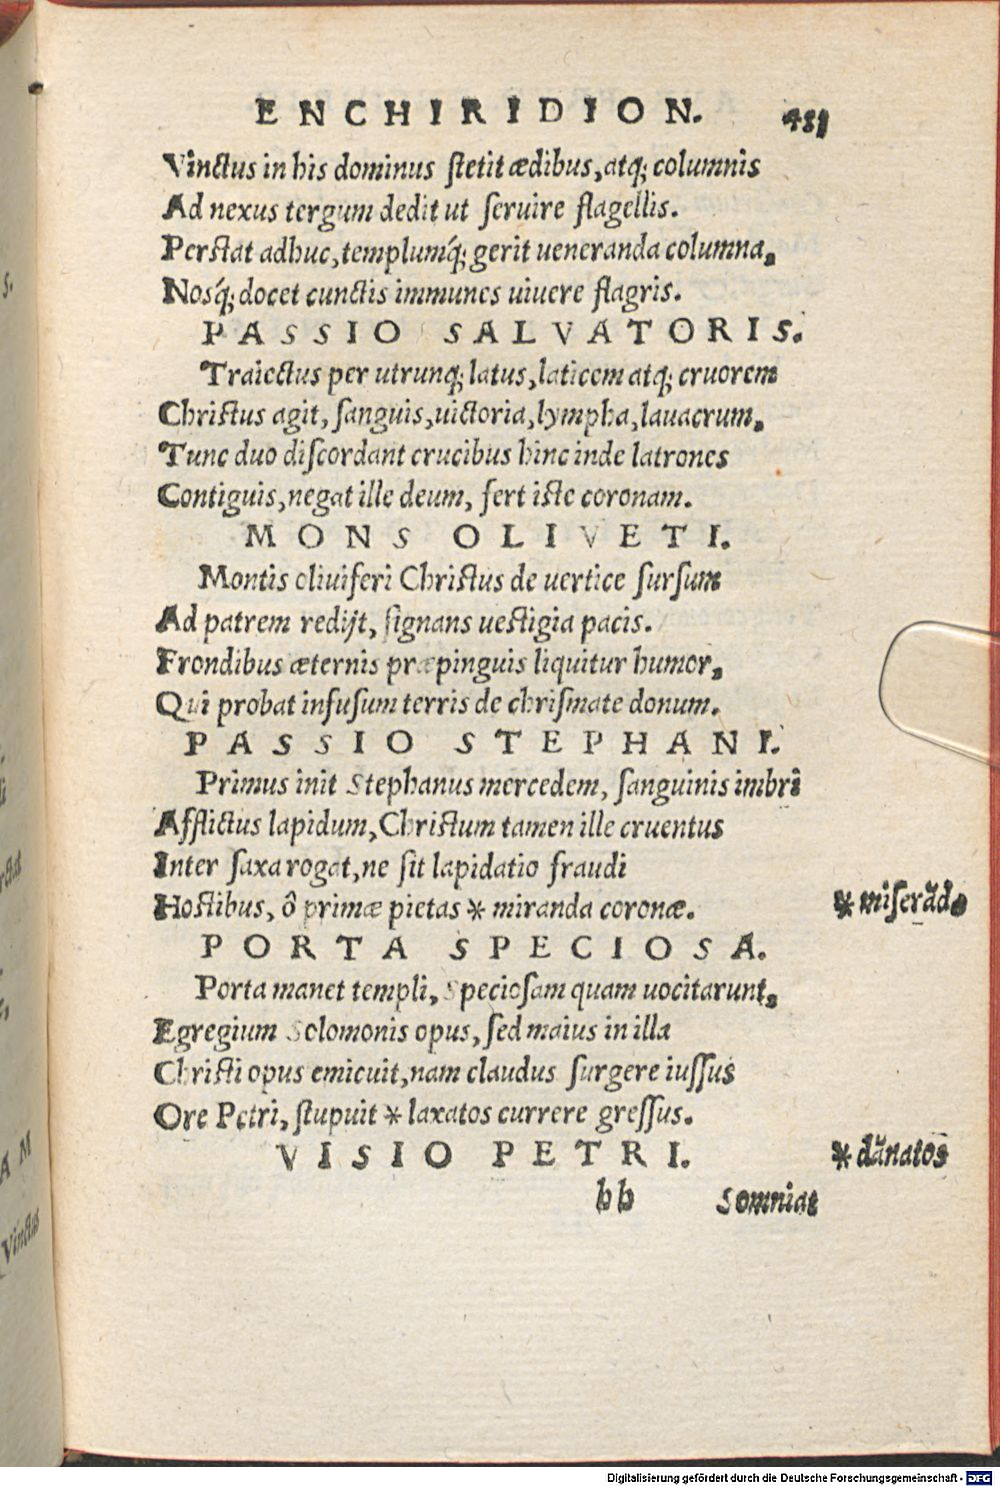 ENCHIRIDION. 481
Vinctus in his dominus stetit ædibus, atq; columnis
Ad nexus tergum dedit ut seruire flagellis.
Perstat adhuc, templumq́; gerit ueneranda columna,
Nosq́; docet cunctis immunes uiuere flagris.
PASSIO SALVATORIS.
Traiectus per utrunq; latus, laticem atq; cruorem
Christus agit, sanguis, uictoria, lympha, lauacrum,
Tunc duo discordant crucibus hinc inde latrones
Contiguis, negat ille deum, fert iste coronam.
MONS OLIVETI.
Montis oliuiferi Christus de uertice sursum
Ad patrem redijt, signans uestigia pacis.
Frondibus æternis præpinguis liquitur humor,
Qui probat infusum terris de chrismate donum.
PASSIO STEPHANI.
Primus init Stephanus mercedem, sanguinis imbri
Afflictus lapidum, Christum tamen ille cruentus
Inter saxa rogat, ne sit lapidatio fraudi
Hostibus, ô primæ pietas * miranda coronæ.
* miserãda
PORTA SPECIOSA.
Porta manet templi, Speciosam quam uocitarunt,
Egregium Solomonis opus, sed maius in illa
Christi opus emicuit, nam claudus surgere iussus
Ore Petri, stupuit * laxatos currere gressus.
VISIO PETRI.
* dãnatos
bb Somniat
s.
A M
Vinctus
Digitalisierung gefördert durch die Deutsche Forschungsgemeinschaft - DFG